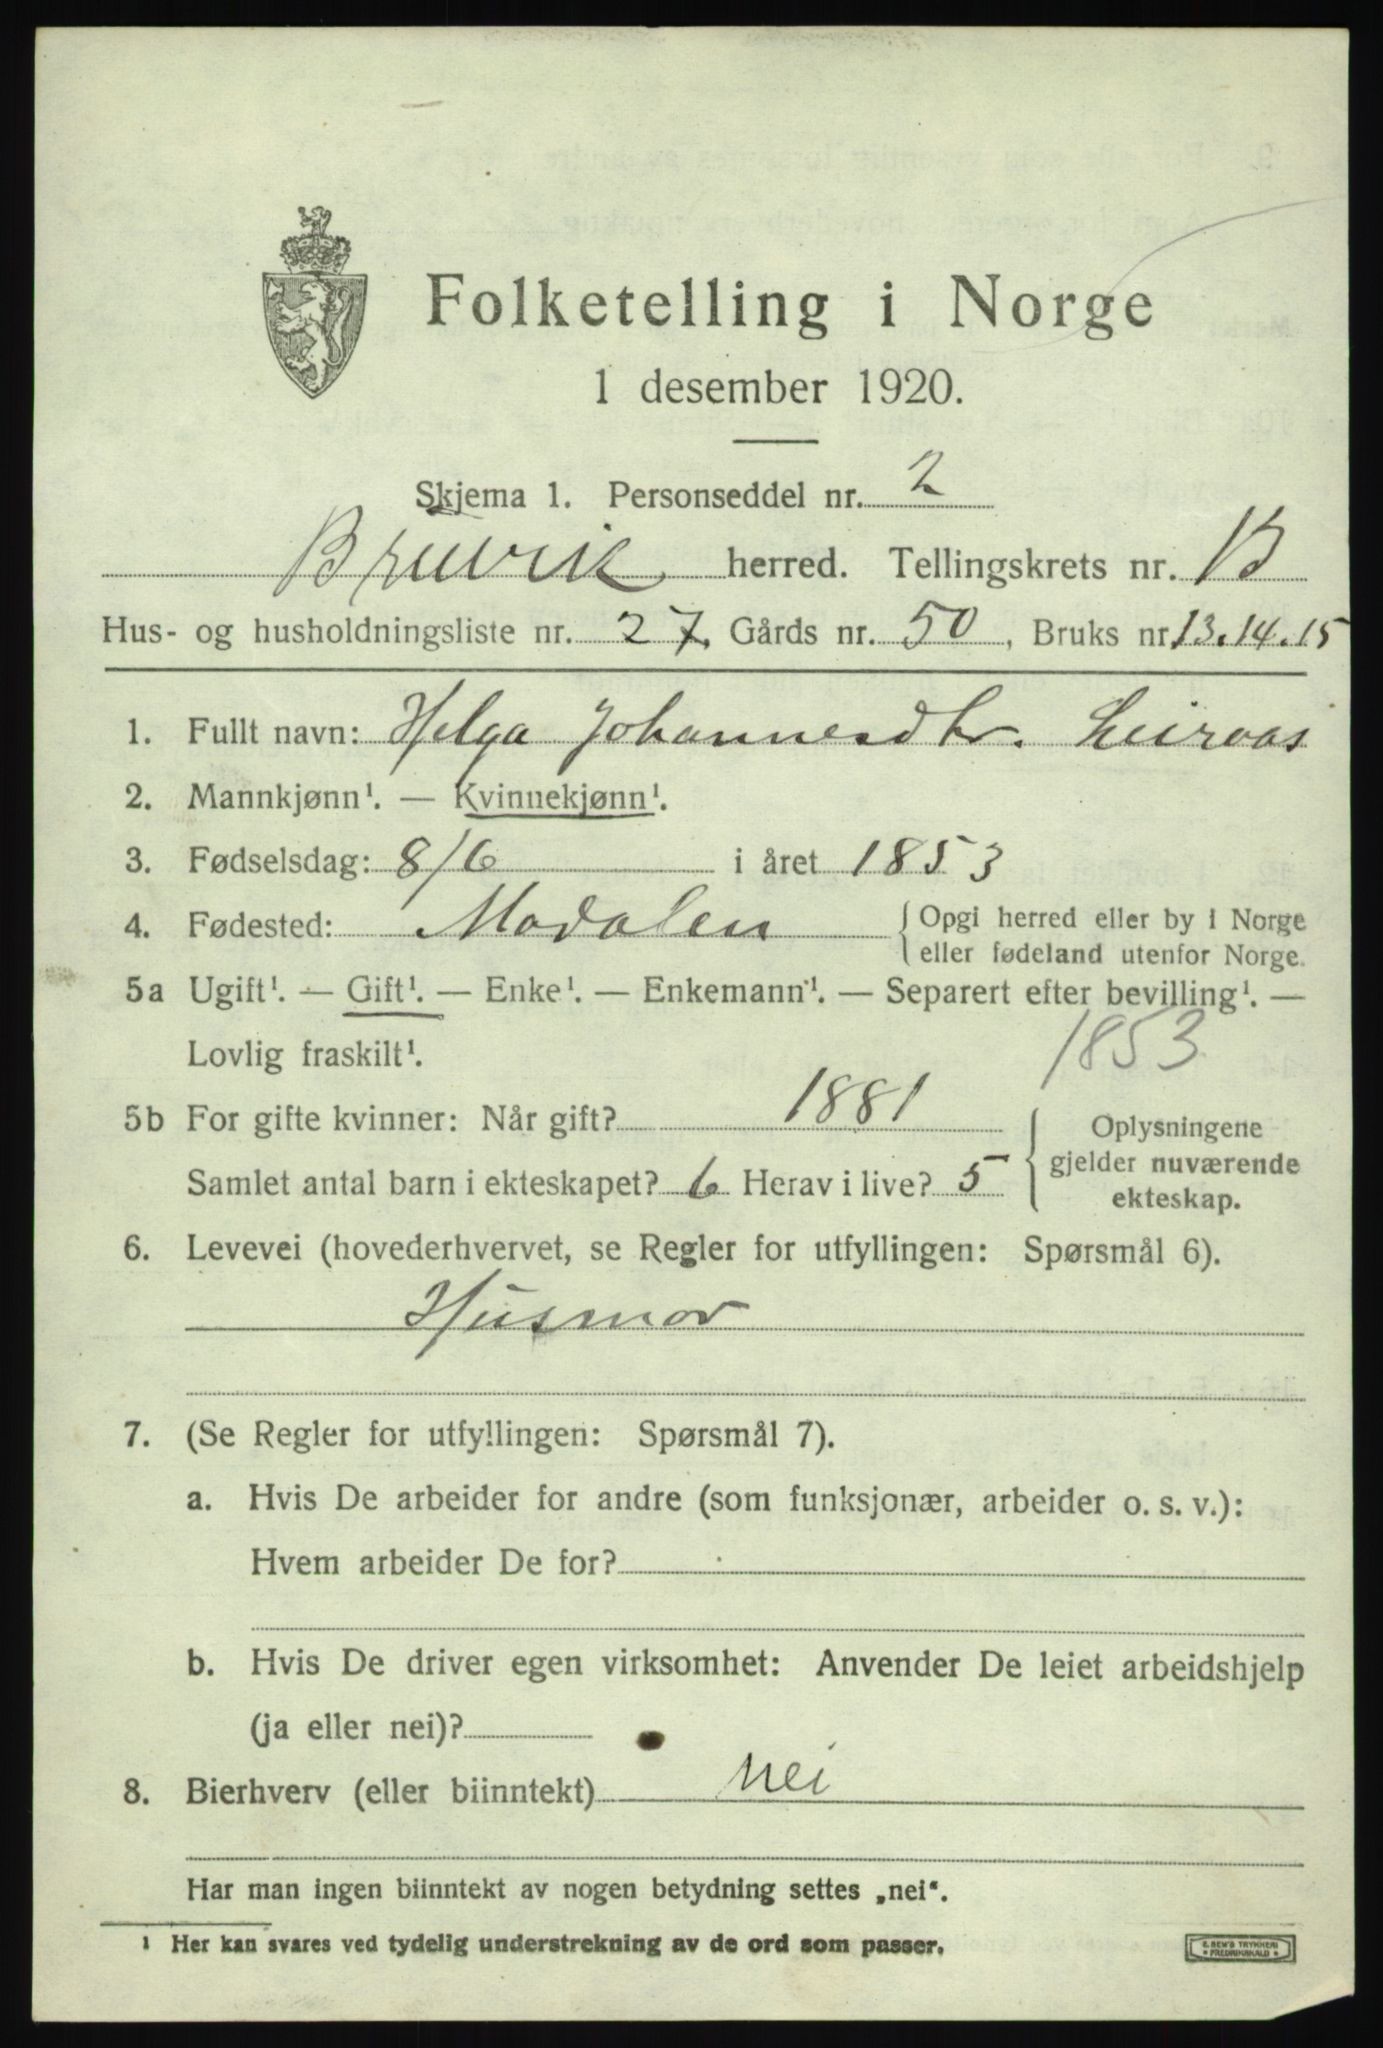 Folketelling i Norge
1 desember 1920.
Skjema 1. Personseddel nr. 2
Bruvik herred. Tellingskrets nr. 13
Hus- og husholdningsliste nr. 27, Gårds nr. 50, Bruks nr. 13.14.15
1. Fullt navn: Helga Johannesdtr. Leiraas
2. Mannkjønn¹. — Kvinnekjønn¹.
3. Fødselsdag: 8/6 i året 1853
4. Fødested: Modalen { Opgi herred eller by i Norge
eller fødeland utenfor Norge.
5a Ugift¹. — Gift¹. — Enke¹. — Enkemann¹. — Separert efter bevilling¹. —
Lovlig fraskilt¹. 1853
5b For gifte kvinner: Når gift? 1881
Samlet antal barn i ekteskapet? 6 Herav i live? 5
{ Oplysningene
gjelder nuværende
ekteskap.
6. Levevei (hovederhvervet, se Regler for utfyllingen: Spørsmål 6).
Husmor
7. (Se Regler for utfyllingen: Spørsmål 7).
a. Hvis De arbeider for andre (som funksjonær, arbeider o. s. v.):
Hvem arbeider De for?
b. Hvis De driver egen virksomhet: Anvender De leiet arbeidshjelp
(ja eller nei)?
8. Bierhverv (eller biinntekt) nei
Har man ingen biinntekt av nogen betydning settes „nei“.
¹ Her kan svares ved tydelig understrekning av de ord som passer.